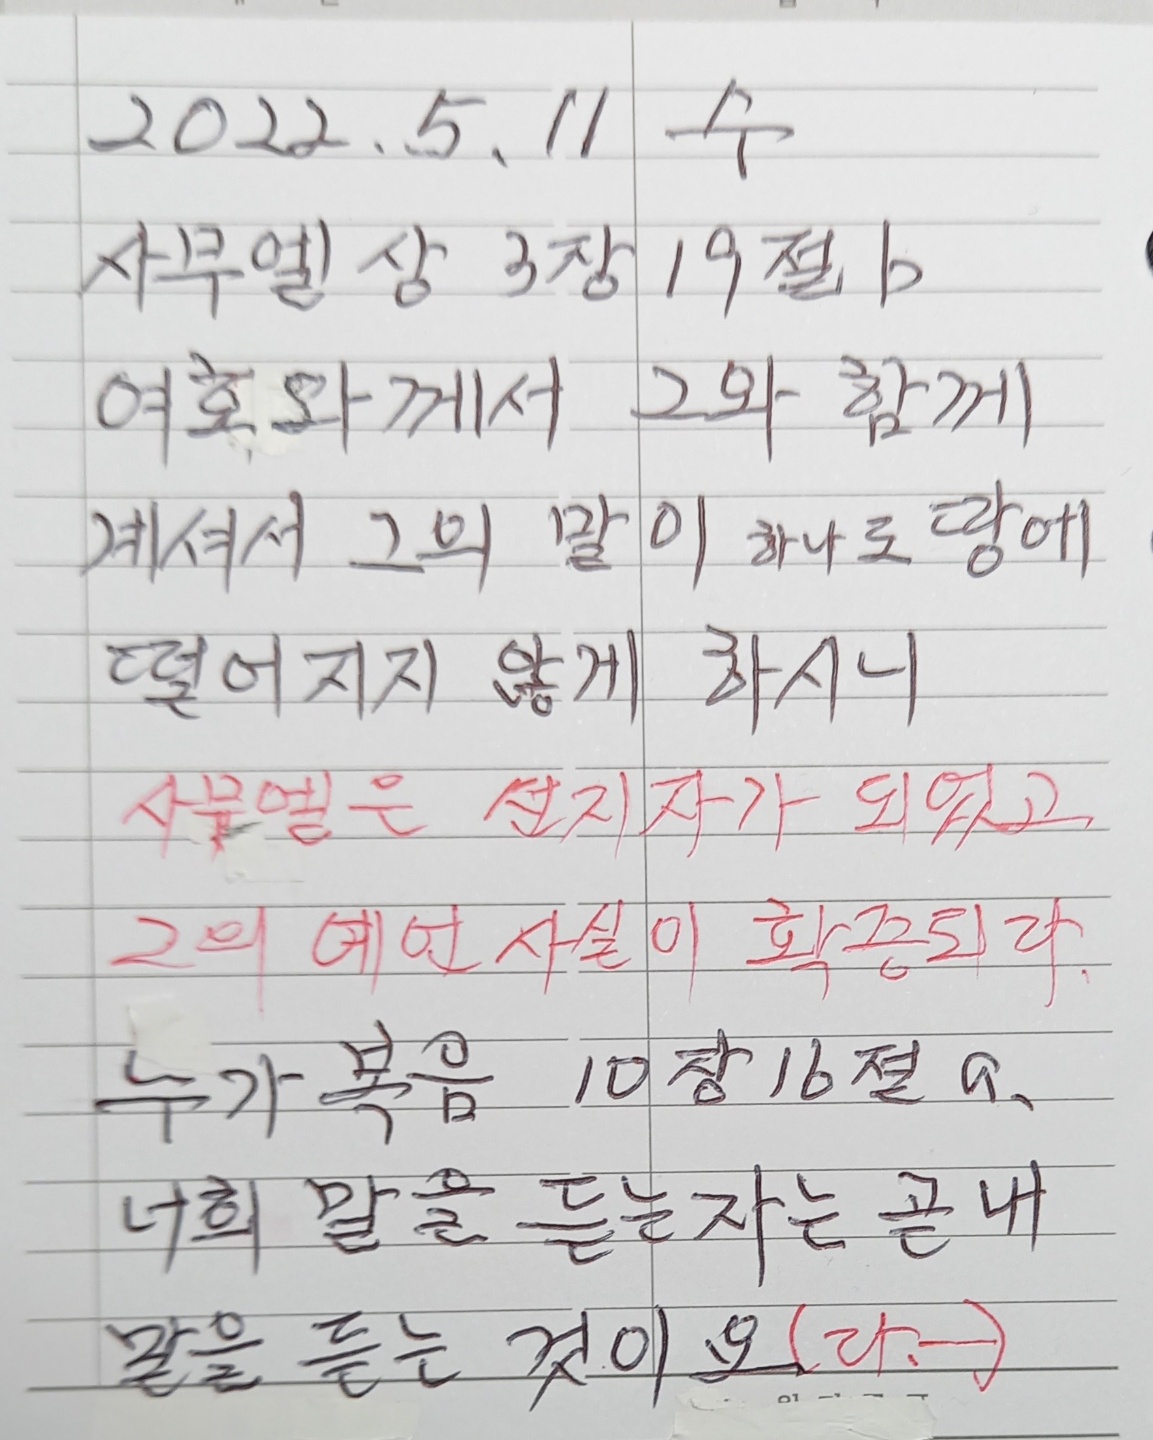 2022.5.11 수
사무엘 상 3장 19절 b
여호와께서 그와 함께
계셔서 그의 말이 하나도 땅에
떨어지지 않게 하시니
사무엘은 선지자가 되었고
그의 예언 사실이 확증되다.
누가복음 10장 16절 a.
너희 말을 듣는자는 곧 내
말을 듣는 것이요(다.一)